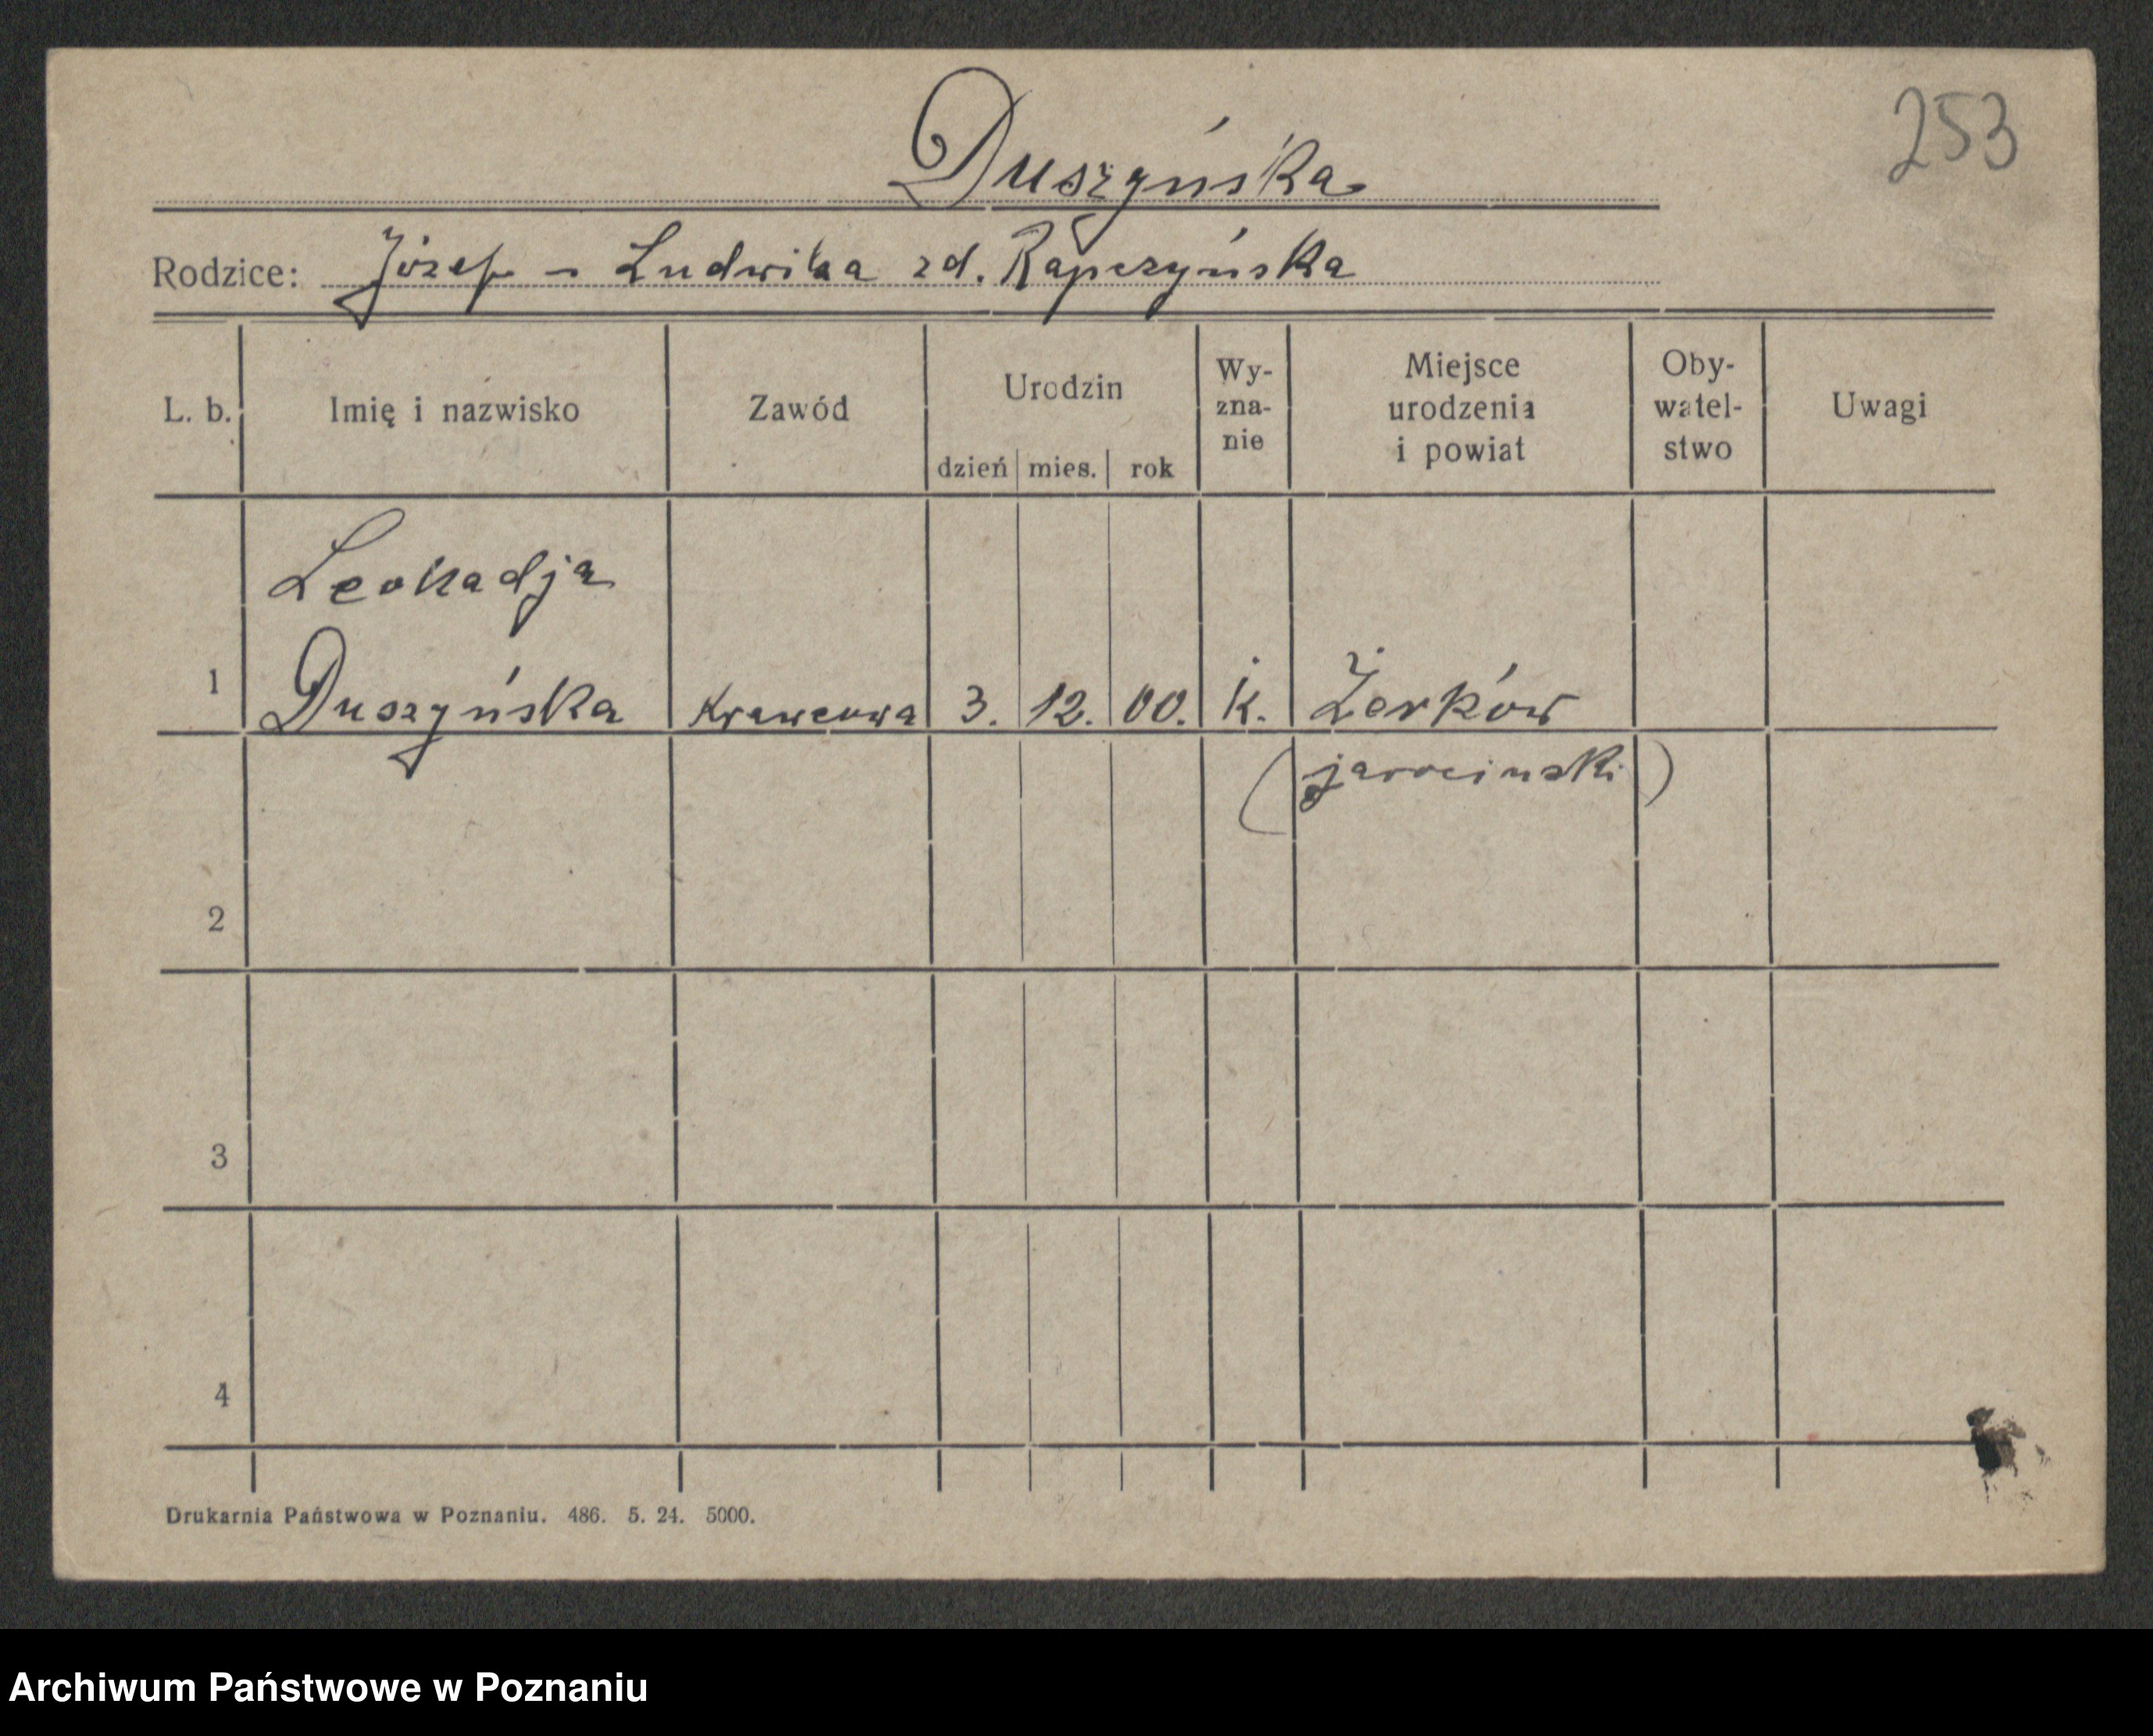 253
Duszyńska
Rodzice: Józef - Ludwika zd. Rapczyńska
L. b. Imię i nazwisko Zawód Urodzin dzień mies. rok Wy-zna-nie Miejsce urodzenia i powiat Oby-watel-stwo Uwagi
Leokadja
1 Duszyńska Krawcowa 3. 12. 00. k. Żerków
(jarocinski)
2
3
4
Drukarnia Państwowa w Poznaniu. 486. 5. 24. 5000.
Archiwum Państwowe w Poznaniu